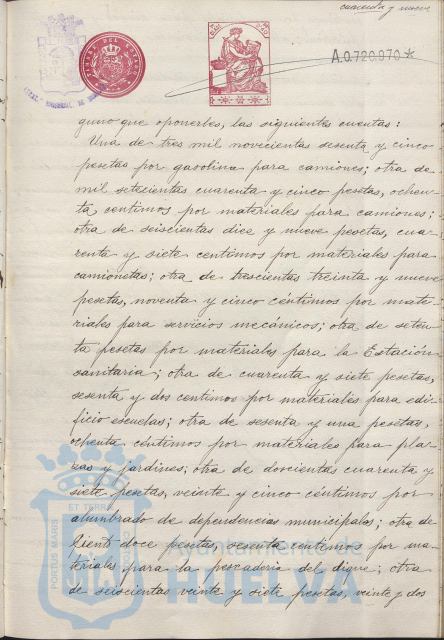 cuarenta y nueve
TIMBRE DEL ESTADO
A.0.720.970*
guno que oponerles, las siguientes cuentas:
Una de tres mil novecientas sesenta y cinco
pesetas por gasolina para camiones; otra de
mil setecientas cuarenta y cinco pesetas, ochen-
ta centimos por materiales para camiones;
otra de seiscientas diez y nueve pesetas, cua-
renta y siete centimos por materiales para
camionetas; otra de trescientas treinta y nueve
pesetas, noventa y cinco centimos por mate-
riales para servicios mecánicos; otra de seten-
ta pesetas por materiales para la Estación
sanitaria; otra de cuarenta y siete pesetas,
sesenta y dos centimos por materiales para edi-
ficio escuelas; otra de sesenta y una pesetas,
ochenta centimos por materiales para pla-
zas y jardines; otra de doscientas cuarenta y
siete pesetas, veinte y cinco centimos por
alumbrado de dependencias municipales; otra de
ciento doce pesetas, sesenta centimos por ma-
teriales para la pescaderia del dique; otra
de seiscientas veinte y siete pesetas, veinte y dos
PORTUS MARIS
ET TERRA
Ayuntamiento de
HUELVA